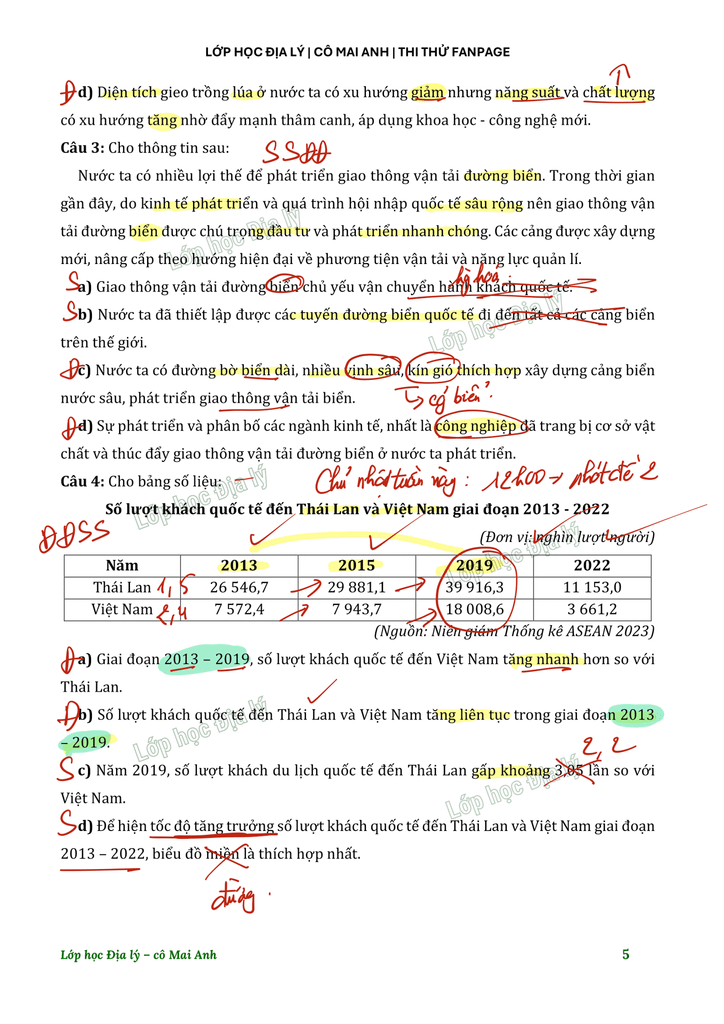 LỚP HỌC ĐỊA LÝ | CÔ MAI ANH | THI THỬ FANPAGE
Đ d) Diện tích gieo trồng lúa ở nước ta có xu hướng giảm nhưng năng suất và chất lượng
có xu hướng tăng nhờ đẩy mạnh thâm canh, áp dụng khoa học - công nghệ mới.
Câu 3: Cho thông tin sau:
SSĐĐ
Nước ta có nhiều lợi thế để phát triển giao thông vận tải đường biển. Trong thời gian
gần đây, do kinh tế phát triển và quá trình hội nhập quốc tế sâu rộng nên giao thông vận
tải đường biển được chú trọng đầu tư và phát triển nhanh chóng. Các cảng được xây dựng
mới, nâng cấp theo hướng hiện đại về phương tiện vận tải và năng lực quản lí.
Lớp học Địa lý
hg hoá.
S a) Giao thông vận tải đường biển chủ yếu vận chuyển hành khách quốc tế.
S b) Nước ta đã thiết lập được các tuyến đường biển quốc tế đi đến tất cả các cảng biển
trên thế giới.
Lớp học Địa lý
Đ c) Nước ta có đường bờ biển dài, nhiều vịnh sâu, kín gió thích hợp xây dựng cảng biển
nước sâu, phát triển giao thông vận tải biển.
↳ cg biển.
Đ d) Sự phát triển và phân bố các ngành kinh tế, nhất là công nghiệp đã trang bị cơ sở vật
chất và thúc đẩy giao thông vận tải đường biển ở nước ta phát triển.
Câu 4: Cho bảng số liệu:
Chủ nhật tuần này : 12h00 → phát đề 2
Lớp học Địa lý
Số lượt khách quốc tế đến Thái Lan và Việt Nam giai đoạn 2013 - 2022
ĐĐSS
(Đơn vị: nghìn lượt người)
Lớp học Địa lý
Năm 2013 2015 2019 2022
Thái Lan 1,5 26 546,7 29 881,1 39 916,3 11 153,0
Việt Nam 2,4 7 572,4 7 943,7 18 008,6 3 661,2
(Nguồn: Niên giám Thống kê ASEAN 2023)
Đ a) Giai đoạn 2013 – 2019, số lượt khách quốc tế đến Việt Nam tăng nhanh hơn so với
Thái Lan.
Đ b) Số lượt khách quốc tế đến Thái Lan và Việt Nam tăng liên tục trong giai đoạn 2013
– 2019.
Lớp học Địa lý
2,2
S c) Năm 2019, số lượt khách du lịch quốc tế đến Thái Lan gấp khoảng 3,05 lần so với
Việt Nam.
Lớp học Địa lý
S d) Để hiện tốc độ tăng trưởng số lượt khách quốc tế đến Thái Lan và Việt Nam giai đoạn
2013 – 2022, biểu đồ miền là thích hợp nhất.
đường.
Lớp học Địa lý – cô Mai Anh
5